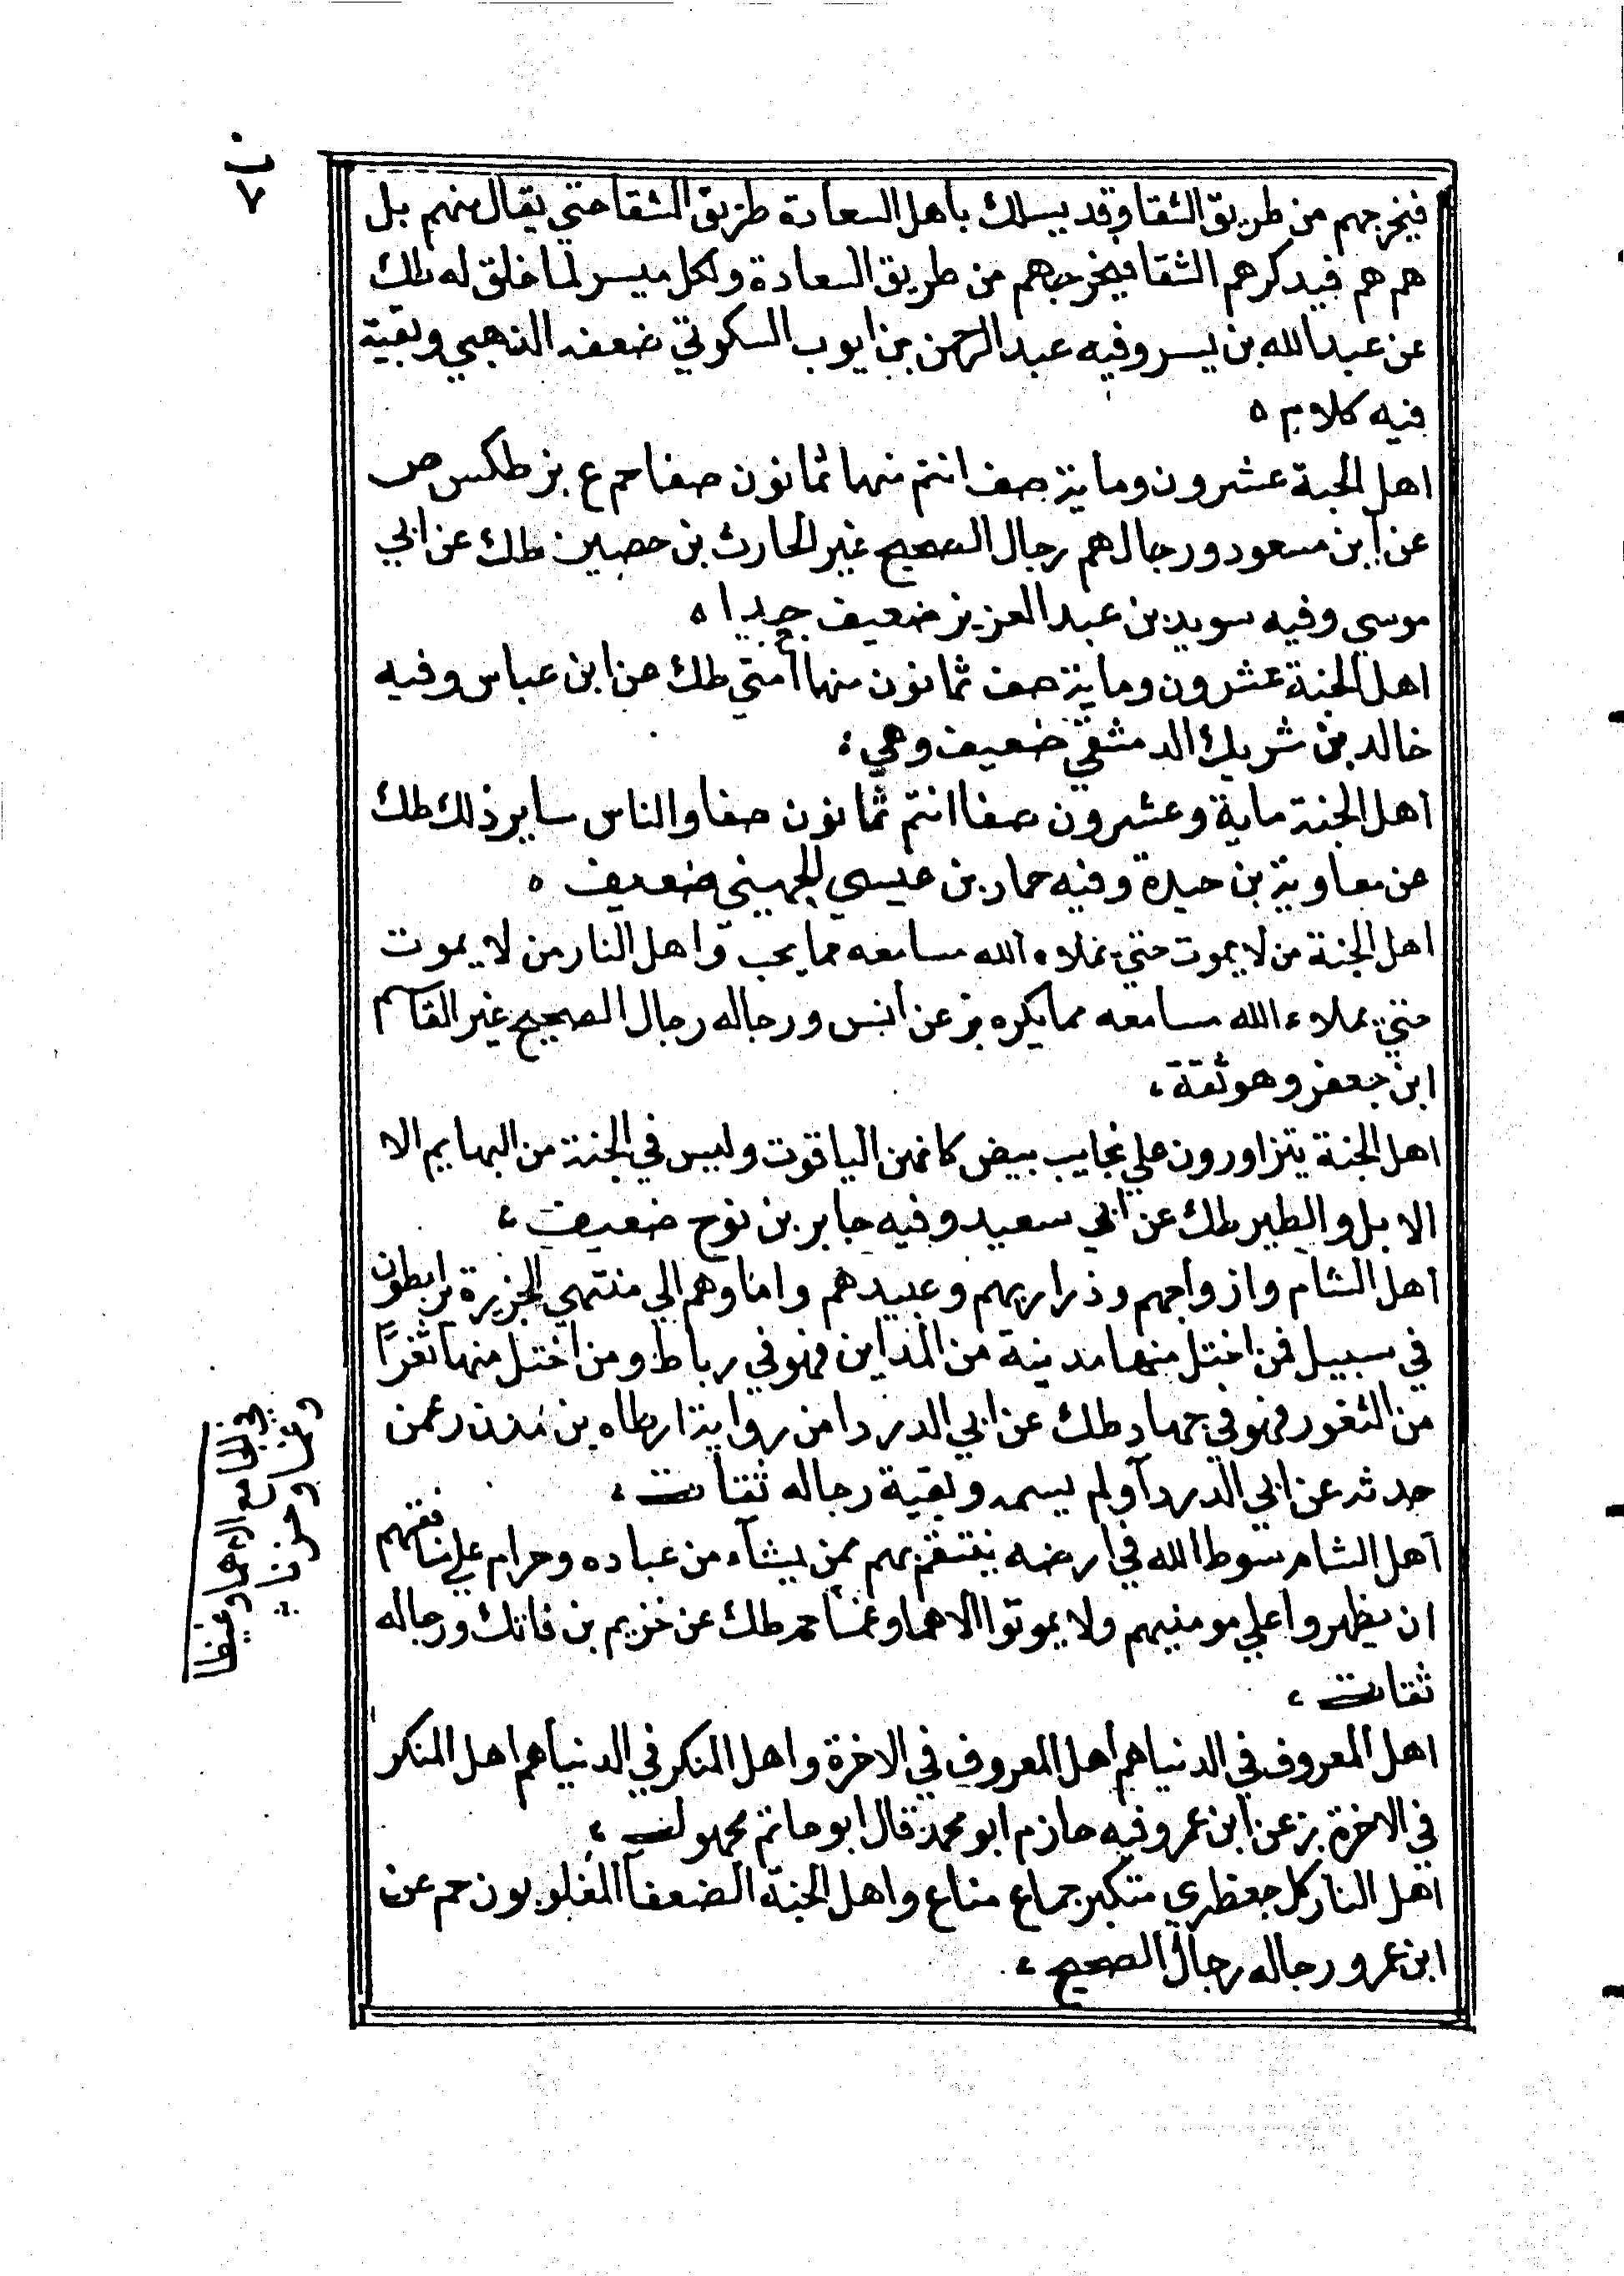 ن
٧
فيخرجهم من طريق الشقا وقد يسلك باهل السعادة طريق الشقا حتي يقال منهم بل
هم هم فيدركهم الشقا فيخرجهم من طريق السعادة وكل ميسر لما خلق له طك
عن عبدالله بن يسر وفيه عبد الرحمن بن ايوب السكوتي ضعفه الذهبي وبقية
فيه كلام ه
اهل الجنة عشرون وماية صف انتم منها ثمانون صفا حم ع بز طكس ص
عن ابن مسعود ورجالهم رجال الصحيح غير الحارث بن حصين طك عن ابي
موسي وفيه سويد بن عبد العزيز ضعيف جدا ه
اهل الجنة عشرون وماية صف ثمانون منها امتي طك عن ابن عباس وفيه
خالد بن شريك الدمشقي ضعيف وهي ؛
اهل الجنة ماية وعشرون صفا انتم ثمانون صفا والناس ساير ذلك طك
عن معاوية بن حيدة وفيه حماد بن عيسي الجهيني ضعيف ه
اهل الجنة من لا يموت حتي يملاء الله مسامعه مما يحب واهل النار من لا يموت
حتي يملاء الله مسامعه مما يكره بز عن انس ورجاله رجال الصحيح غير القاسم
ابن جعفر وهو ثقة ،
اهل الجنة يتزاورون علي نجايب بيض كانهن الياقوت وليس في الجنة من البهايم الا
الابل والطير طك عن ابي سعيد وفيه جابر بن نوح ضعيف ،
اهل الشام وازواجهم وذراريهم وعبيدهم واماوهم الي منتهي الجزيرة مرابطون
في سبيل فمن احتل منها مدينة من المداين فهو في رباط ومن احتل منها ثغرًا
من الثغور فهو في جهاد طك عن ابي الدردا من رواية ارطاه بن منذر عمن
حدثه عن ابي الدردآ ولم يسمه وبقية رجاله ثقات ،
اهل الشام سوط الله في ارضه ينتقم بهم ممن يشآء من عباده وحرام علي منافقهم
ان يظهروا علي مومنيهم ولا يموتوا الا هما وغمًا حم طك عن خزيم بن فاتك ورجاله
ثقات ،
اهل المعروف في الدنيا هم اهل المعروف في الاخرة واهل المنكر في الدنيا هم اهل المنكر
في الاخرة بز عن ابن عمر وفيه حازم ابو محمد قال ابو حاتم مجهول ،
اهل النار كل جعظري متكبر جماع مناع واهل الجنة الضعفآ المغلوبون حم عن
ابن عمرو رجاله رجال الصحيح ،